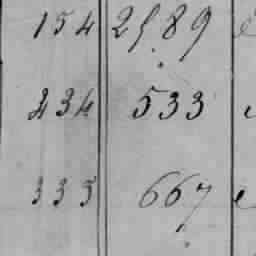 154 2589
234 533
335 667